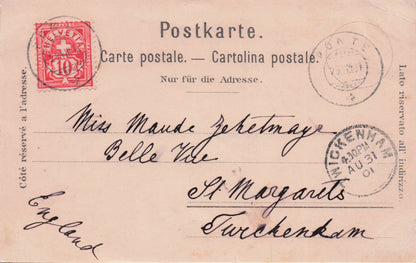 Postkarte.
Carte postale. — Cartolina postale.
Nur für die Adresse.
Côté réservé a l'adresse.
Lato riservato all' indirizzo.
HELVETIA
10
TWICKENHAM
4.30PM
AU 31
01
Miss Maude Zehetmayr
Belle Vue
St Margarets
Twickenham
England